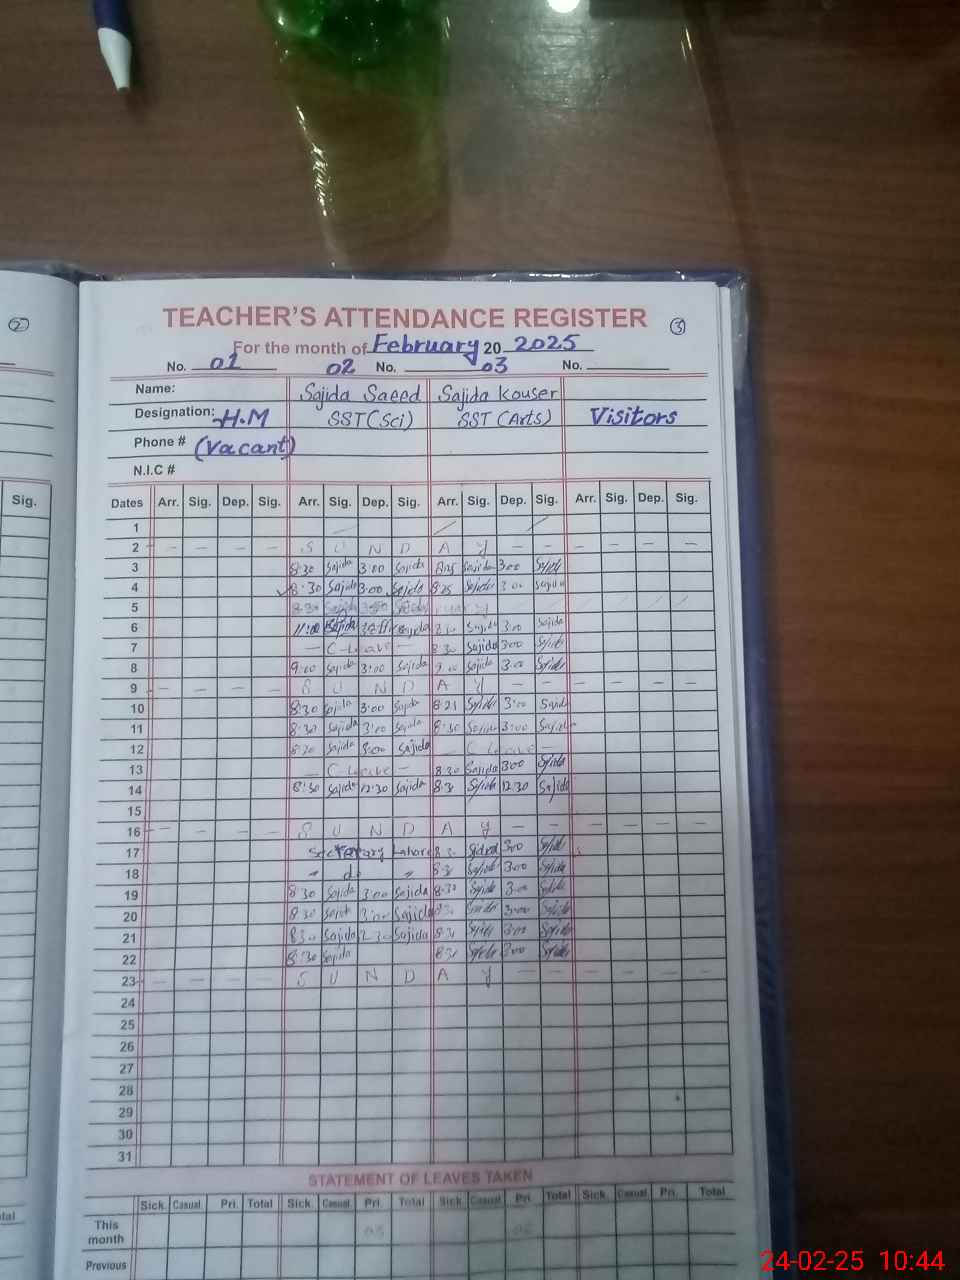 2
3
TEACHER'S ATTENDANCE REGISTER
For the month of February 20 2025
No. 01 02 No. 03 No.
Name: Sajida Saeed Sajida Kouser
Designation: H.M SST (Sci) SST (Arts) Visitors
Phone # (Vacant)
N.I.C #
Sig. Dates Arr. Sig. Dep. Sig. Arr. Sig. Dep. Sig. Arr. Sig. Dep. Sig. Arr. Sig. Dep. Sig.
1
2 S U N D A Y
3 8:30 Sajida 3:00 Sajida 8:25 Sajida 3:00 Sajida
4 8:30 Sajida 3:00 Sajida 8:25 Sajida 3:00 Sajida
5 8:30 Sajida
6 Sajida Sajida 3:00 Sajida
7 C-Leave 8:30 Sajida 3:00 Sajida
8 9:00 Sajida 3:00 Sajida 9:00 Sajida 3:00 Sajida
9 S U N D A Y
10 8:30 Sajida 3:00 Sajida 8:25 Sajida 3:00 Sajida
11 8:30 Sajida 3:00 Sajida 8:30 Sajida 3:00 Sajida
12 8:30 Sajida 3:00 Sajida C-Leave
13 C-Leave 8:30 Sajida 3:00 Sajida
14 8:30 Sajida 12:30 Sajida 8:30 Sajida 12:30 Sajida
15
16 S U N D A Y
17 Secretary Lahore 8:30 Sajida 3:00 Sajida
18 " do " 8:30 Sajida 3:00 Sajida
19 8:30 Sajida 3:00 Sajida 8:30 Sajida 3:00 Sajida
20 8:30 Sajida 3:00 Sajida Sajida 3:00 Sajida
21 8:30 Sajida 12:30 Sajida 8:30 Sajida Sajida
22 8:30 Sajida 8:30 Sajida 3:00 Sajida
23 S U N D A Y
24
25
26
27
28
29
30
31
STATEMENT OF LEAVES TAKEN
Sick. Casual. Pri. Total Sick. Casual. Pri. Total Sick. Casual. Pri. Total Sick. Casual. Pri. Total
This month
Previous
24-02-25 10:44